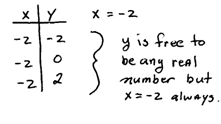 X Y x = -2
-2 -2
-2 0
-2 2
y is free to
be any real
number but
x=-2 always.